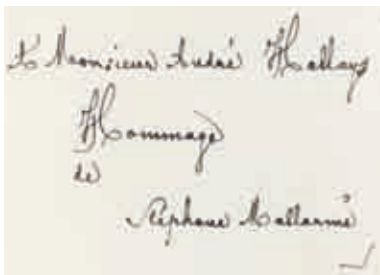 A Monsieur André Hallays
Hommage
de
Stéphane Mallarmé